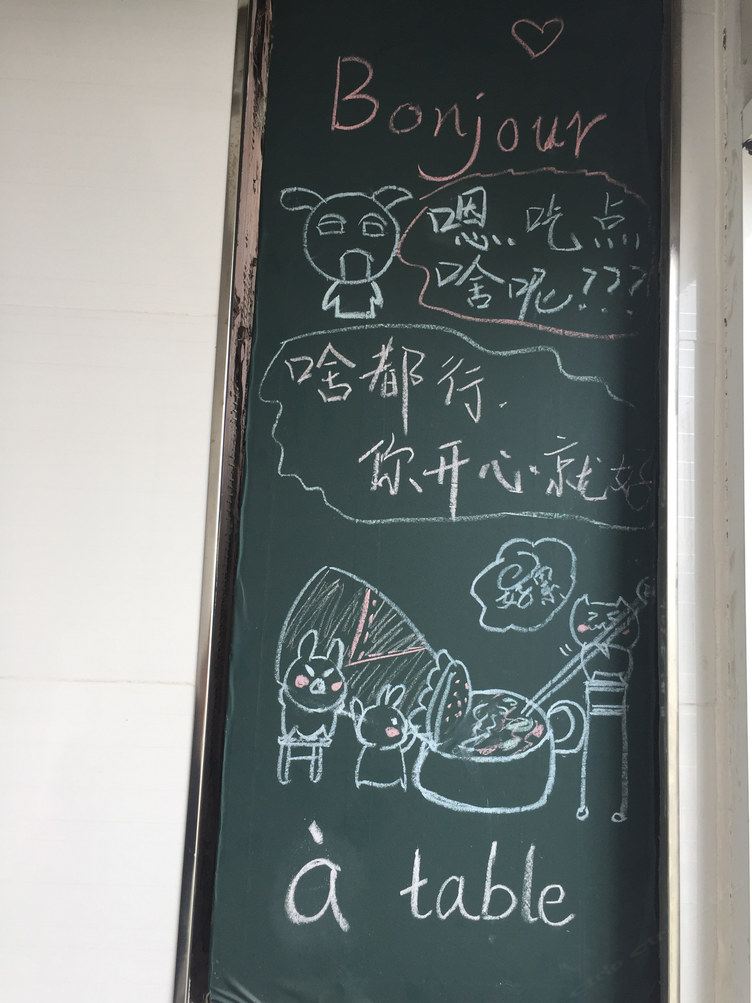 Bonjour
嗯..吃点
啥呢???
啥都行.
你开心就好
好累
à table